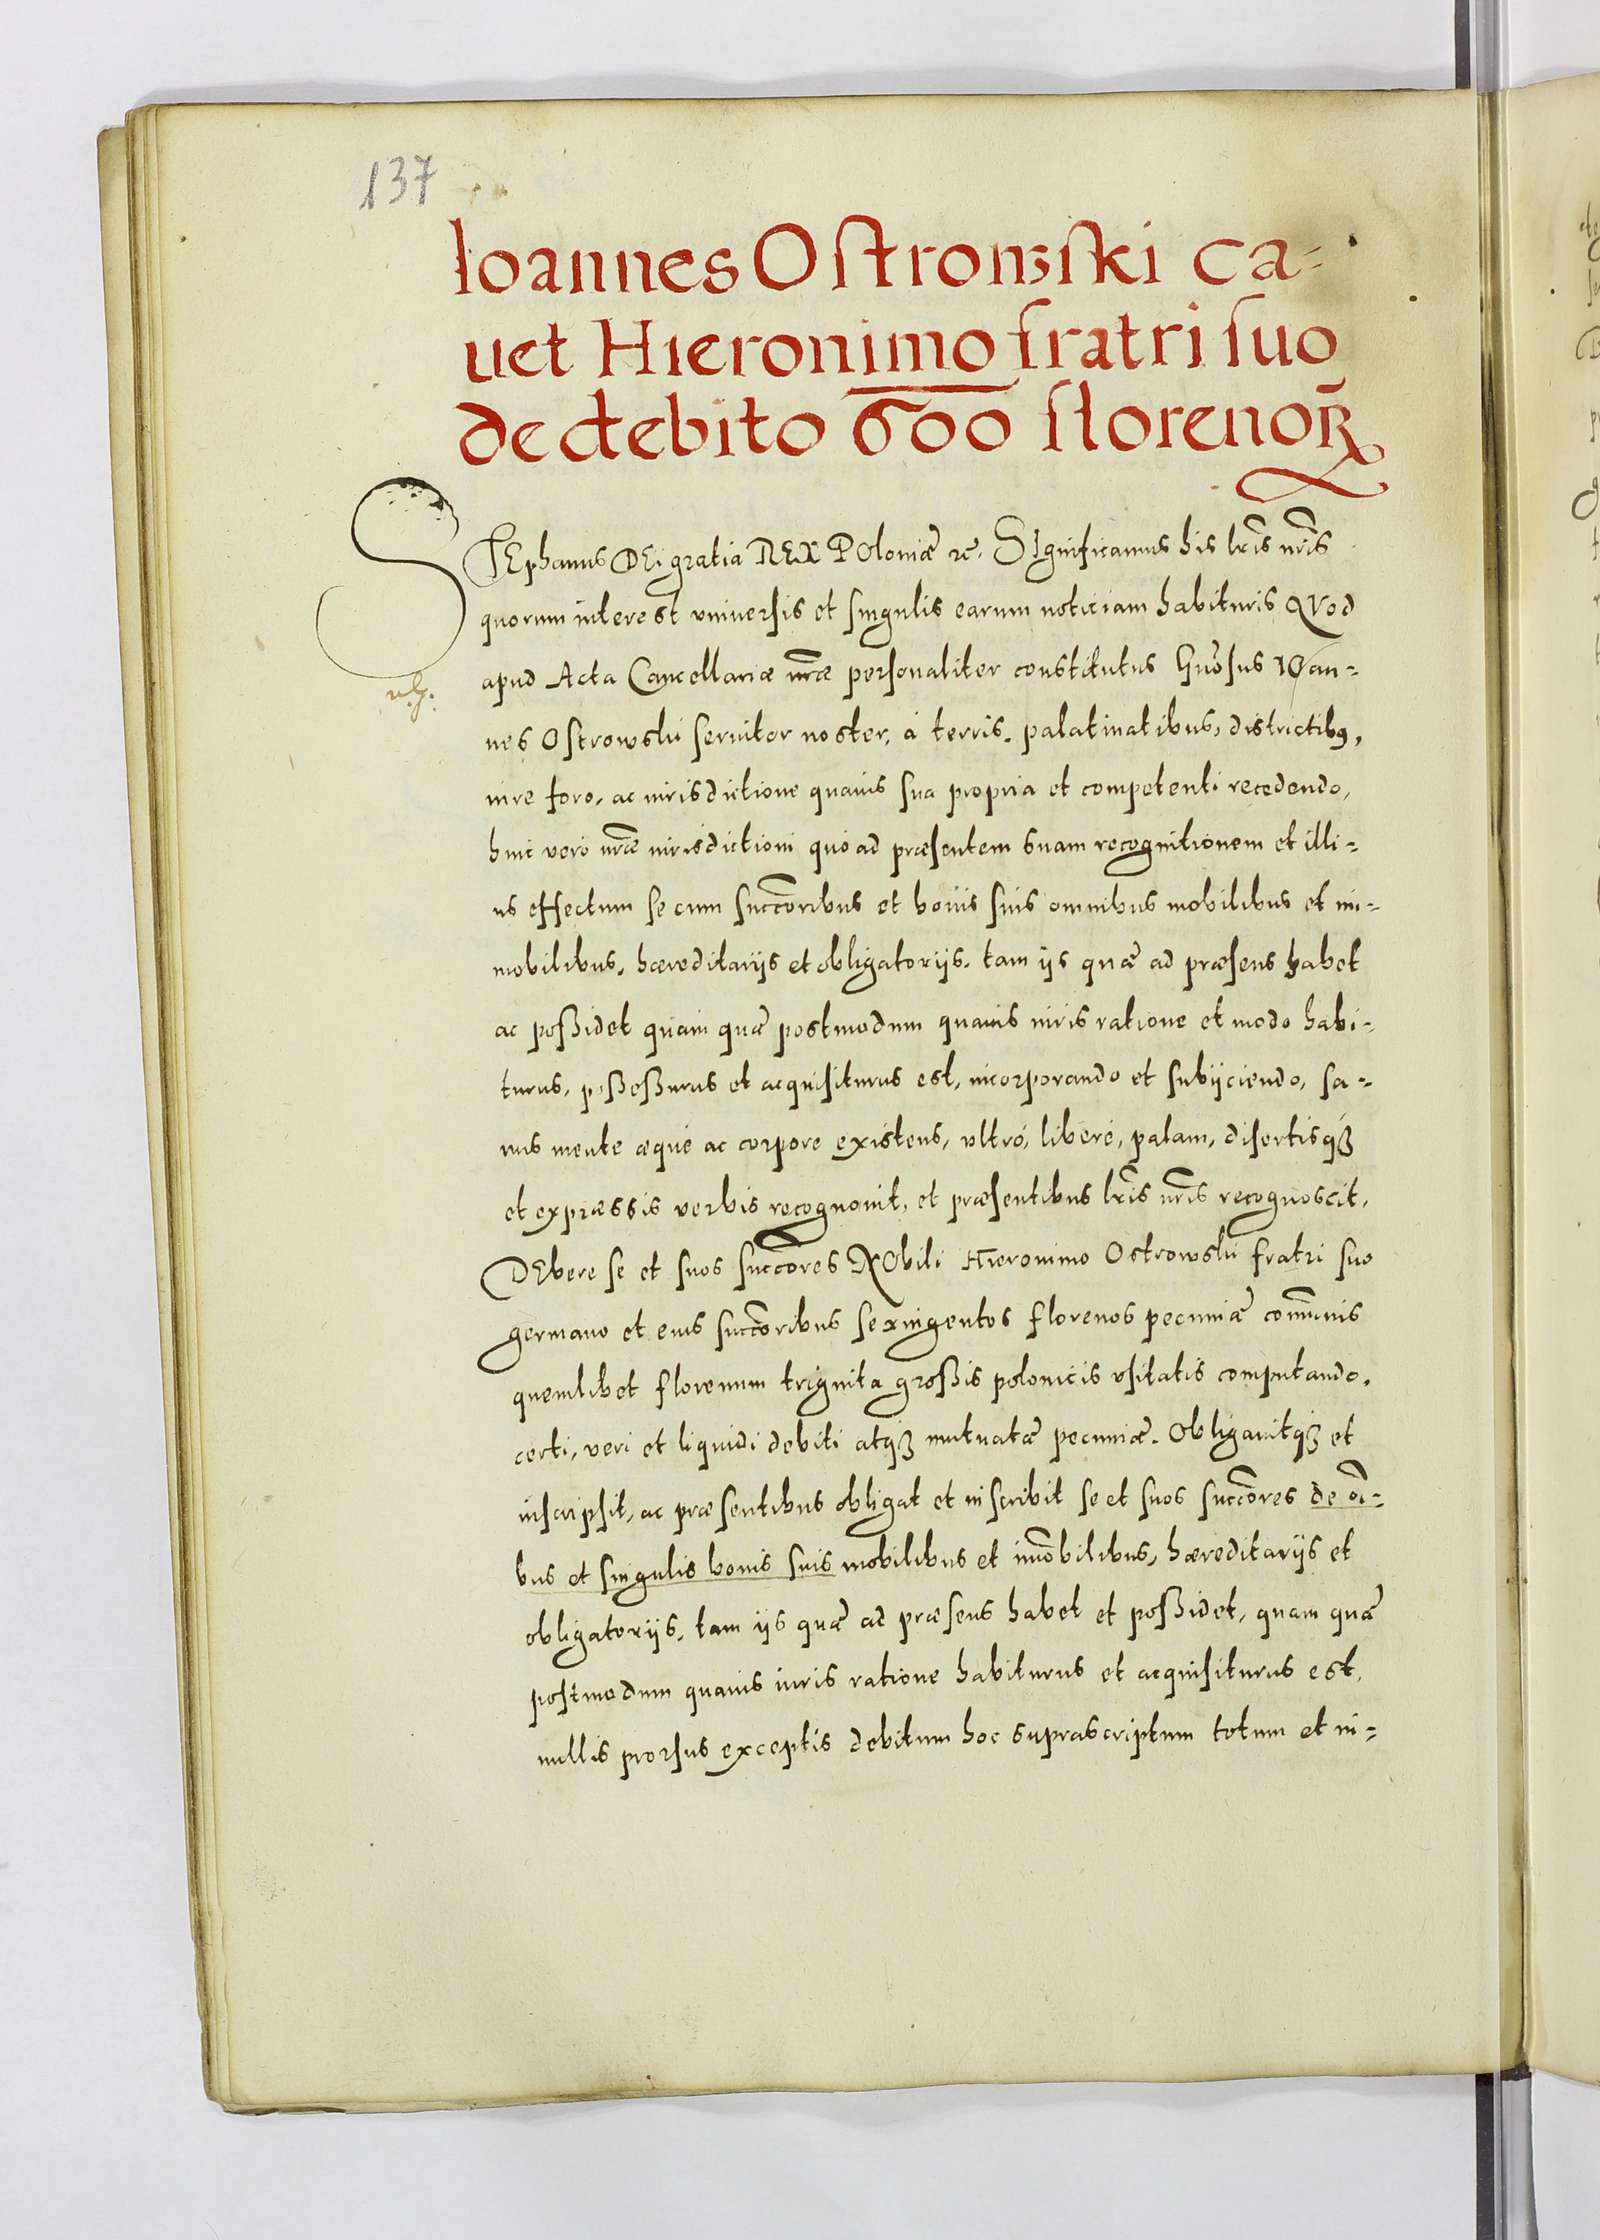 137
Ioannes Ostrowski ca-
uet Hieronimo fratri suo
de debito 600 florenoꝝ
STEphanus DEi gratia REX POloniæ ꝛc. SIgnificamus his lr̃is nr̃is
quorum interest vniuersis et singulis earum noticiam habituris QVod
apud Acta Cancellariæ nr̃æ personaliter constitutus Gnõsus IOan-
nes Ostrowski seruitor noster, à terris, palatinatibus, districtibꝰ,
iure foro, ac iurisdictione quauis sua propria et competenti recedendo,
huic verò nr̃æ iurisdictioni quò ad præsentem suam recognitionem et illi-
us effectum se cum succẽoribus et bonis suis omnibus mobilibus et im-
mobilibus, hæreditarijs et obligatorijs, tam ijs quæ ad præsens habet
ac poßidet quàm quæ postmodum quauis iuris ratione et modo habi-
turus, poßeßurus et acquisiturus est, incorporando et subijciendo, sa-
nus mente æquè ac corpore existens, vltrò, liberè, palam, disertisqꝫ
et expræssis verbis recognouit, et præsentibus lr̃is nr̃is recognoscit,
DEbere se et suos succẽores NObili Hieronimo Ostrowski fratri suo
germano et eius succẽoribus sexingentos florenos pecuniæ com̃unis
quemlibet florenum triginta großis polonicis vsitatis computando,
certi, veri et liquidi debiti atqꝫ mutuatæ pecuniæ. Obligauitqꝫ et
inscripsit, ac præsentibus obligat et inscribit se et suos succẽores de oĩ-
bus et singulis bonis suis mobilibus et im̃obilibus, hæreditarijs et
obligatorijs, tam ijs quæ ad præsens habet et poßidet, quam quæ
postmodum quauis iuris ratione habiturus et acquisiturus est,
nullis prorsus exceptis debitum hoc suprascriptum totum et in-